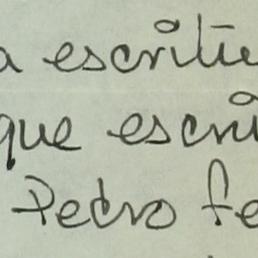 a escritu
que escri
Pedro fe